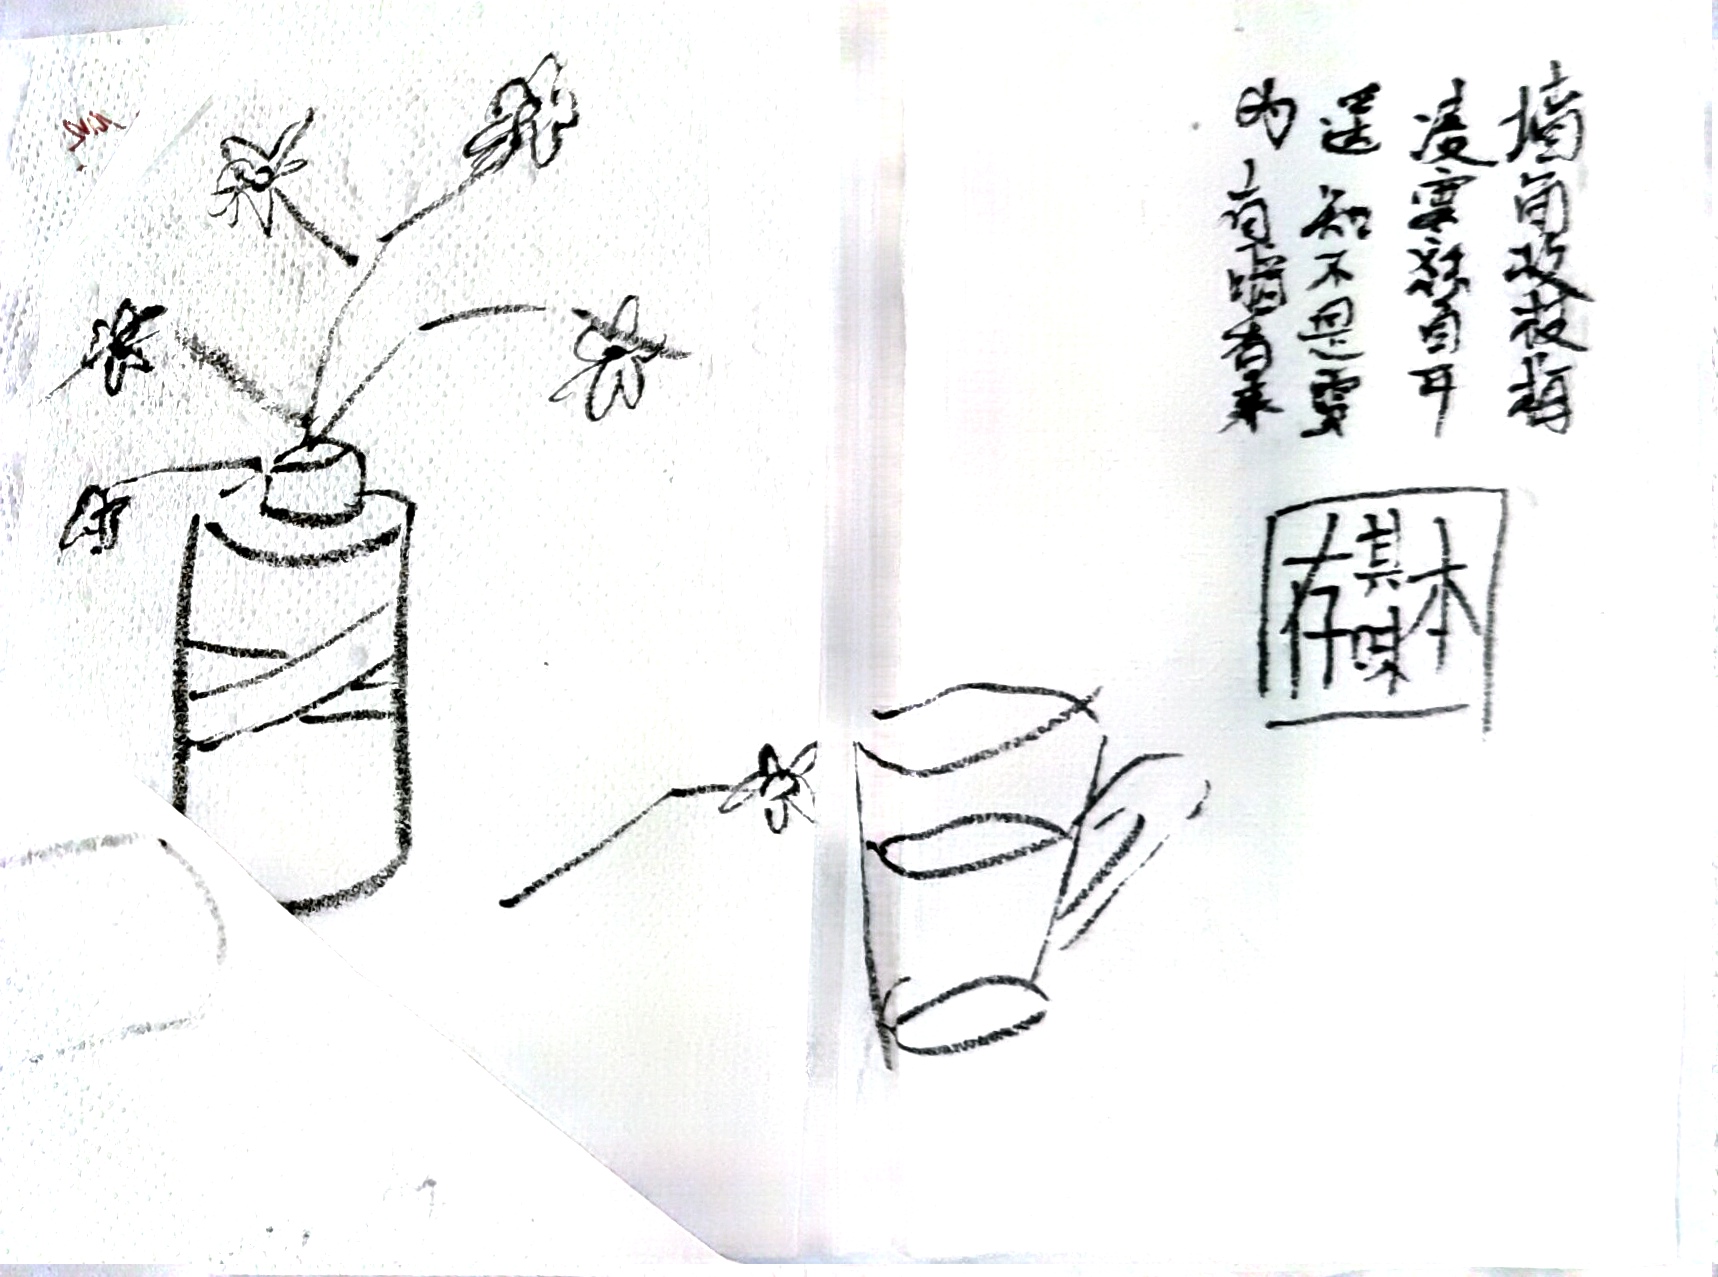 墙角数枝梅
凌寒独自开
遥知不是雪
为有暗香来